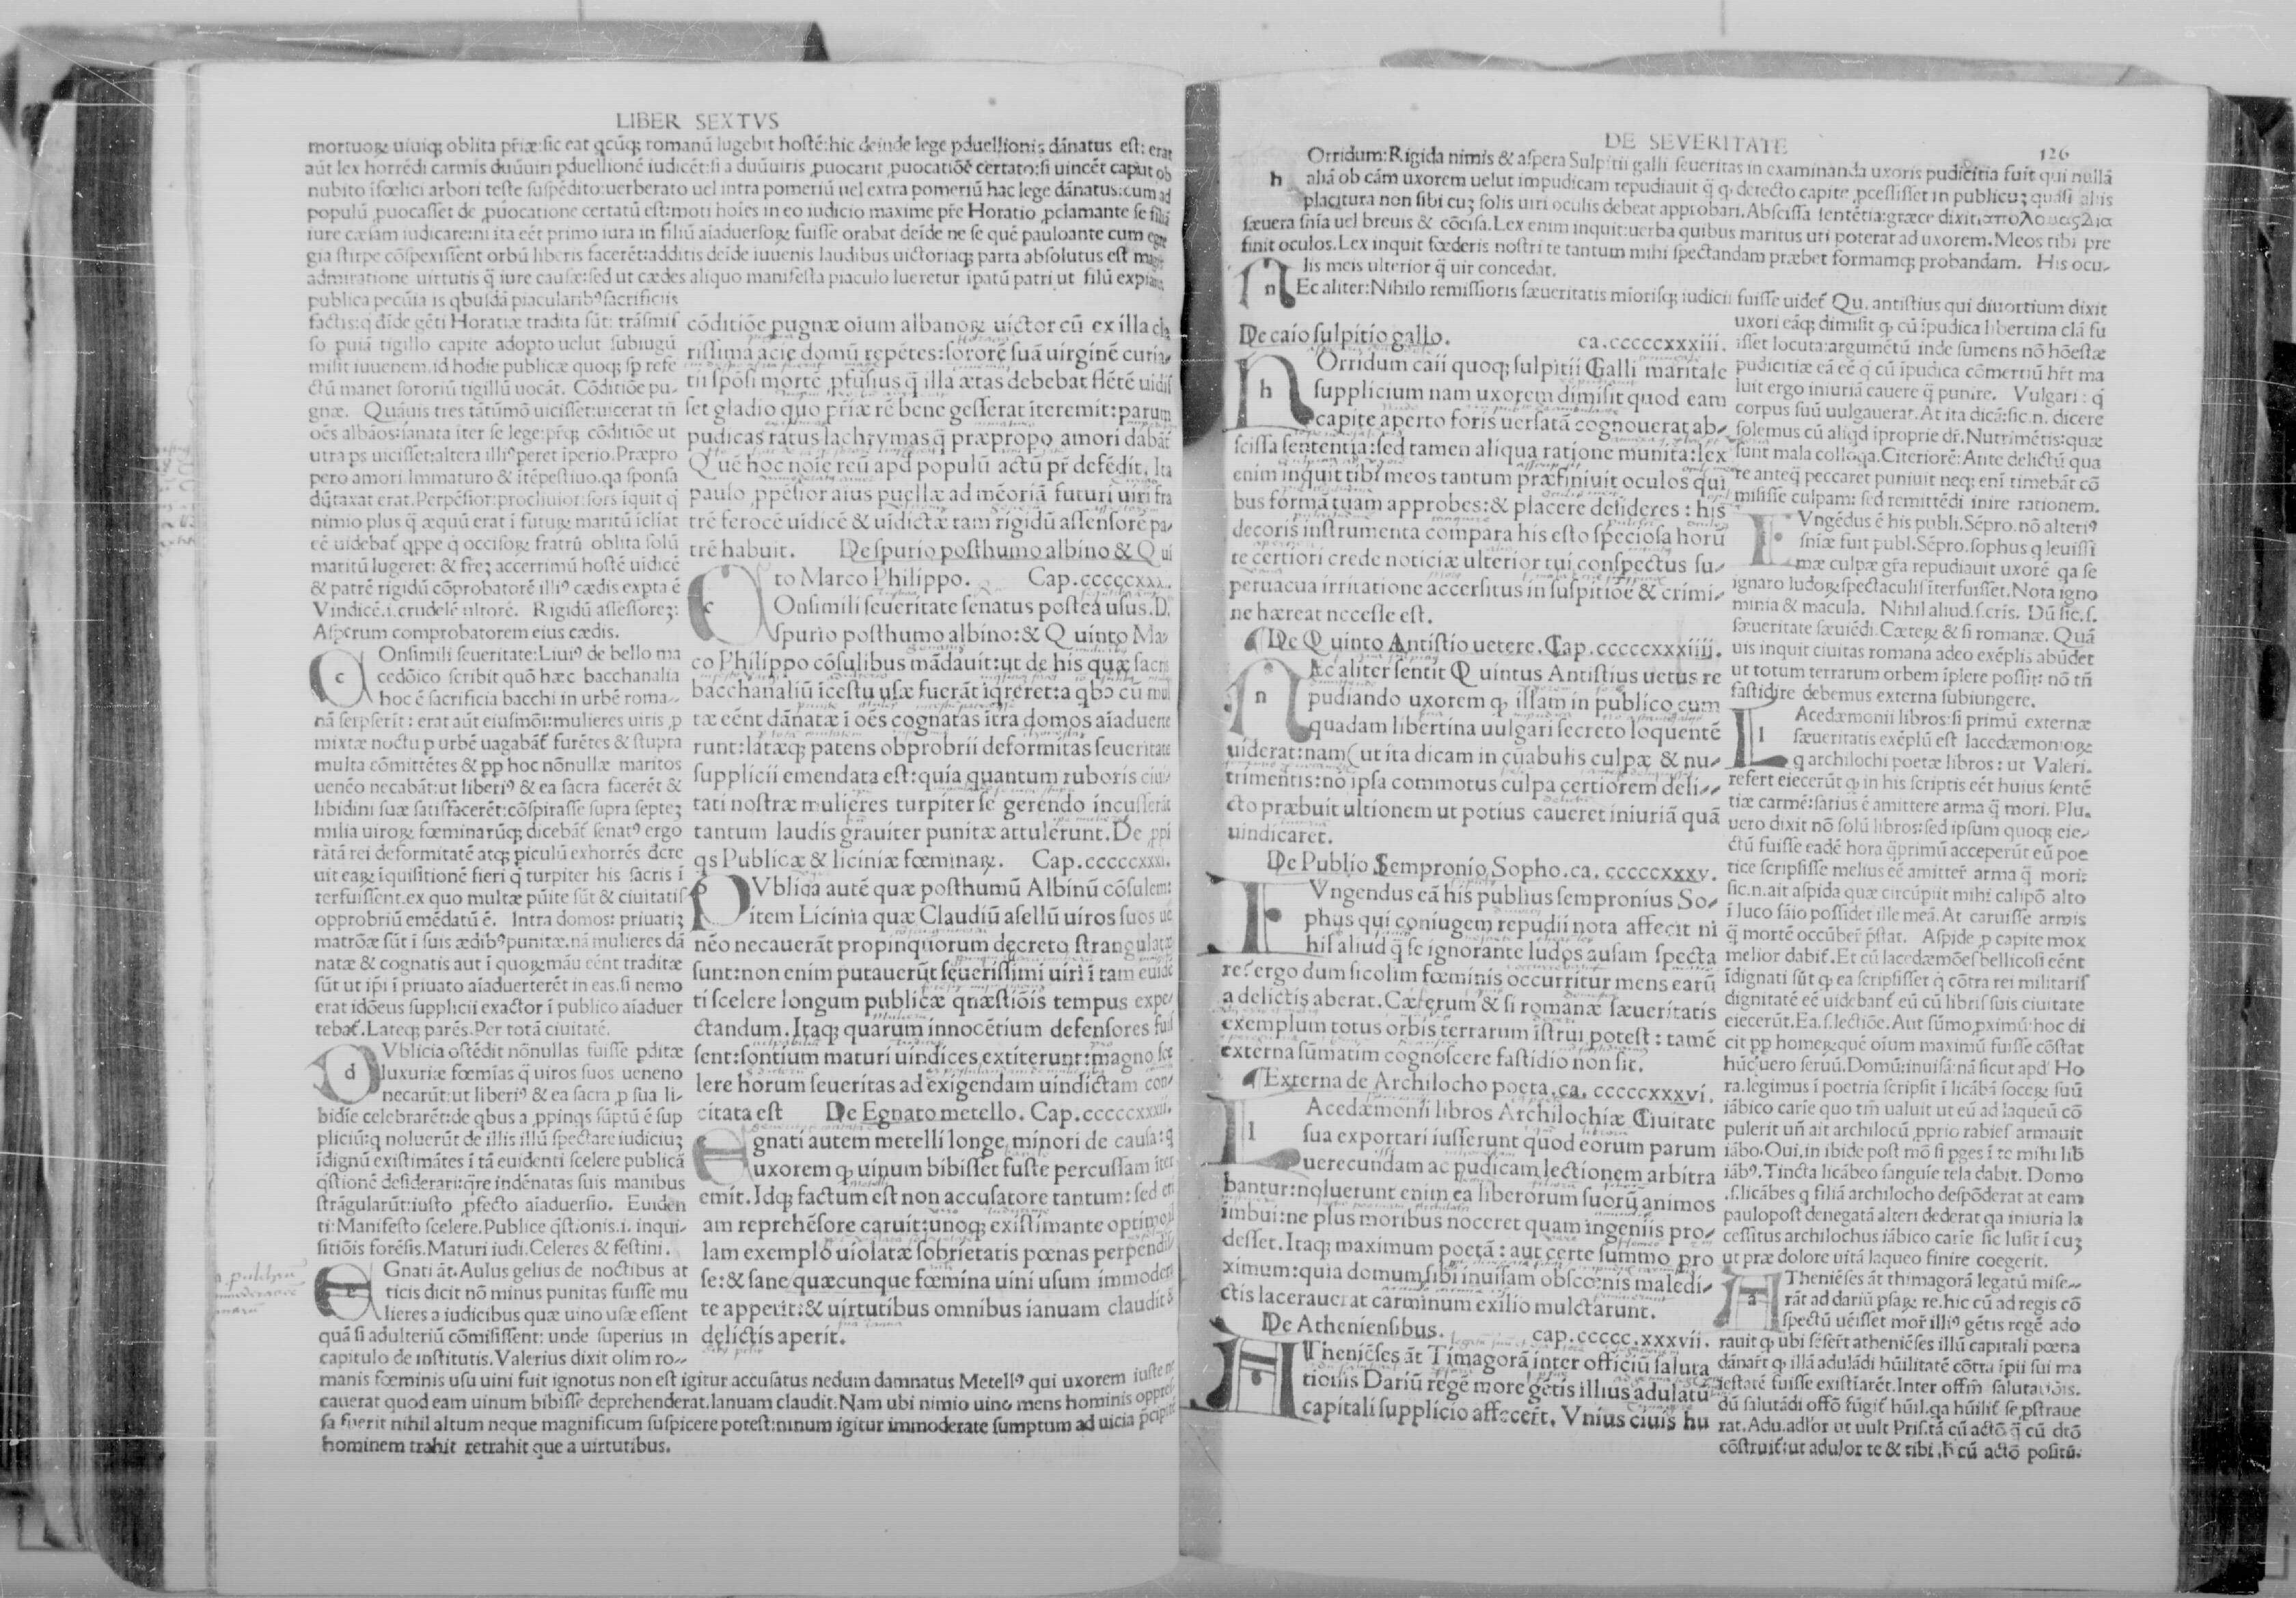 LIBER SEXTVS
mortuoꝝ uiuiqꝫ oblita pr̃iæ:sic eat qcũqꝫ romanũ lugebit hostẽ:hic deinde lege pduellionis dãnatus est: erat
aũt lex horrẽdi carmis duũuiri pduellionẽ iudicẽt:si a duũuiris ,puocarit ,puocatiõẽ certato:si uincẽt caput ob
nubito ĩfœlici arbori teste suspẽdito:uerberato uel intra pomeriũ uel extra pomeriũ hac lege dãnatus:cum ad
populũ ,puocasset de ,puocatione certatũ est:moti hoĩes in eo iudicio maxime pr̃e Horatio ,pclamante se filiã
iure cæsam iudicare:ni ita eẽt primo iura in filiũ aĩaduersoꝝ fuisse orabat deĩde ne se quẽ pauloante cum egre
gia stirpe cõspexissent orbũ liberis facerẽt:additis deĩde iuuenis laudibus uictoriaqꝫ parta absolutus est magis
admiratione uirtutis q̃ iure causæ:sed ut cædes aliquo manifesta piaculo lueretur ĩpatũ patri ut filũ expiaret
publica pecũia is qbusdã piacularibꝰ sacrificiis
factis:q deĩde gẽti Horatiæ tradita sũt: trãsmis
so puiã tigillo capite adopto uelut subiugũ
misit iuuenem.id hodie publicæ quoqꝫ sp refe
ctũ manet sororiũ tigillũ uocãt. Cõditiõe pu-
gnæ. Quãuis tres tãtũmõ uicisset:uicerat tñ
oẽs albãos:ianata iter se lege:pr̃qꝫ cõditiõe ut
utra ps uicisset:altera illiꝰ peret ĩperio.Præpro
pero amori.Immaturo & ĩtẽpestiuo.qa sponsa
dũtaxat erat.Perpẽsior:procliuior:sors iquit q̃
nimio plus q̃ æquũ erat ĩ futuꝝ maritũ icliat
eẽ uidebat̃ qppe q̃ occisoꝝ fratrũ oblita solũ
maritũ lugeret: & freꝫ accerrimũ hostẽ uidicẽ
& patrẽ rigidũ cõprobatorẽ illiꝰ cædis expta ẽ
Vindicẽ.i.crudelẽ ultorẽ. Rigidũ assessoreꝫ:
Asperum comprobatorem eius cædis.
c Onsimili seueritate:Liuiꝰ de bello ma
cedõico scribit quõ hæc bacchanalia
hoc ẽ sacrificia bacchi in urbẽ roma-
nã serpserĩt : erat aũt eiusmõi:mulieres uiris ,p
mixtæ noctu p urbẽ uagabãt̃ furẽtes & stupra
multa cõmittẽtes & pp hoc nõnullæ maritos
uenẽo necabãt:ut liberiꝰ & ea sacra facerẽt &
libidini suæ satisfacerẽt:cõspirasse supra septeꝫ
milia uiroꝝ fœminarũqꝫ dicebãt̃ senatꝰ ergo
tãtã rei deformitatẽ atqꝫ piculũ exhorrẽs decre
uit eaꝝ ĩquisitionẽ fieri q̃ turpiter his sacris ĩ
terfuissent.ex quo multæ pũite sũt & ciuitatis
opprobriũ emẽdatũ ẽ. Intra domos: priuatiꝫ
matrõæ sũt ĩ suis ædibꝰ punitæ.nã mulieres dã
natæ & cognatis aut ĩ quoꝝ mãu eẽnt traditæ
sũt ut ipĩ ĩ priuato aĩaduerterẽt in eas.si nemo
erat idõeus supplicii exactor ĩ publico aĩaduer
tebat̃.Lateqꝫ parẽs.Per totã ciuitatẽ.
d Vblicia ostẽdit nõnullas fuisse pditæ
luxuriæ fœmĩas q̃ uiros suos ueneno
necarũt:ut liberiꝰ & ea sacra ,p sua li-
bidĩe celebrarẽt:de qbus a ,ppinqs sũptũ ẽ sup
pliciũ:q noluerũt de illis illũ spectare iudiciuꝫ
ĩdignũ existimãtes ĩ tã euidenti scelere publicã
q̃stionẽ desiderari:q̃re indẽnatas suis manibus
strãgularũt:iusto ,pfecto aĩaduersio. Euiden
ti:Manifesto scelere.Publice q̃stionis.i. inqui-
sitiõis forẽsis.Maturi iudi.Celeres & festini.
e Gnati ãt.Aulus gelius de noctibus at
ticis dicit nõ minus punitas fuisse mu
lieres a iudicibus quæ uino usæ essent
quã si adulteriũ cõmisissent: unde superius in
capitulo de institutis.Valerius dixit olim ro-
manis fœminis usu uini fuit ignotus non est igitur accusatus nedum damnatus Metellꝰ qui uxorem iuste ne
cauerat quod eam uinum bibisse deprehenderat.Ianuam claudit.Nam ubi nimio uino mens hominis oppres
sa fuerit nihil altum neque magnificum suspicere potest:ninum igitur immoderate sumptum ad uicia p̃cipite
hominem trahit retrahit que a uirtutibus.
cõditiõe pugnæ oĩum albanoꝝ uictor cũ ex illa cla
rissima acie domũ repẽtes:sororẽ suã uirginẽ curia-
tii sposi mortẽ ,pfusius q̃ illa ætas debebat flẽtẽ uidis
set gladio quo pr̃iæ rẽ bene gesserat ĩteremit:parum
pudicas ratus lachrymas q̃ præpropo amori dabãt̃
Quẽ hoc noĩe reũ apd populũ actũ pr̃ defẽdit. Ita
paulo ,ppẽsior aĩus puellæ ad mẽoriã futuri uiri fra
trẽ ferocẽ uidicẽ & uidictæ tam rigidũ assensorẽ pa-
trẽ habuit. De spurio posthumo albino & Qui
to Marco Philippo. Cap.cccccxxx.
c Onsimili seueritate senatus postea usus.D.
spurio posthumo albino:& Quinto Ma-
co Philippo cõsulibus mãdauit:ut de his quæ sacris
bacchanaliũ ĩcestu usæ fuerãt iqreret:a qbꝯ cũ mul
tæ eẽnt dãnatæ ĩ oẽs cognatas ĩtra domos aĩaduerte
runt:latæqꝫ patens obprobrii deformitas seueritate
supplicii emendata est:quia quantum ruboris ciui-
tati nostræ mulieres turpiter se gerendo incusserãt
tantum laudis grauiter punitæ attulerunt.De ,ppi
qs Publicæ & liciniæ fœminaꝝ. Cap.cccccxxxi.
p Vbliqa autẽ quæ posthumũ Albinũ cõsulem:
item Licinia quæ Claudiũ asellũ uiros suos ue
nẽo necauerãt propinquorum decreto strangulatæ
sunt:non enim putauerũt seuerissimi uiri ĩ tam euidẽ
ti scelere longum publicæ quæstiõis tempus expe-
ctandum.Itaqꝫ quarum innocẽtium defensores fuis
sent:sontium maturi uindices extiterunt:magno sce
lere horum seueritas ad exigendam uindictam con-
citata est De Egnato metello. Cap.cccccxxxii.
e gnati autem metelli longe minori de causa:q
uxorem qꝫ uinum bibisset fuste percussam ĩter
emit.Idqꝫ factum est non accusatore tantum: sed eti
am reprehẽsore caruit:unoqꝫ existimante optimo il
lam exemplo uiolatæ sobrietatis pœnas perpendis
se:& sane quæcunque fœmina uini usum immodera
te apperit:& uirtutibus omnibus ianuam claudit &
delictis aperit.
DE SEVERITATE
126
h Orridum:Rigida nimis & aspera Sulpitii galli seueritas in examinanda uxoris pudicitia fuit qui nullã
aliã ob cãm uxorem uelut impudicam repudiauit q̃ qꝫ detecto capite ,pcessisset in publicuꝫ quasi aliis
placitura non sibi cuꝫ solis uiri oculis debeat approbari.Abscissa sentẽtia:græce dixit
sæuera sñia uel breuis & cõcisa.Lex enim inquit:uerba quibus maritus uti poterat ad uxorem.Meos tibi pre
finit oculos.Lex inquit fœderis nostri te tantum mihi spectandam præbet formamqꝫ probandam. His ocu-
lis meis ulterior q̃ uir concedat.
n Ec aliter:Nihilo remissioris sæueritatis mĩorisqꝫ iudicii fuisse uidet̃ Qu. antistius qui diuortium dixit
De caio sulpitio gallo. ca.cccccxxxiii.
h Orridum caii quoqꝫ sulpitii Galli maritale
supplicium nam uxorem dimisit quod eam
capite aperto foris uersatã cognouerat ab-
scissa sententia:sed tamen aliqua ratione munita:lex
enim inquit tibi meos tantum præfiniuit oculos qui
bus forma tuam approbes:& placere desideres : his
decoris instrumenta compara his esto speciosa horũ
te certiori crede noticiæ ulterior tui conspectus su-
peruacua irritatione accersitus in suspitiõe & crimi-
ne hæreat necesse est.
De Quinto Antistio uetere. Cap.cccccxxxiiii.
n Ec aliter sentit Quintus Antistius uetus re
pudiando uxorem qꝫ illam in publico cum
quadam libertina uulgari secreto loquentẽ
uiderat:nam(ut ita dicam in cũabulis culpæ & nu-
trimentis:nõ ipsa commotus culpa certiorem deli-
cto præbuit ultionem ut potius caueret iniuriã quã
uindicaret.
De Publio Sempronio Sopho.ca. cccccxxxv.
F Vngendus eã his publius sempronius So-
phus qui coniugem repudii nota affecit ni
hil aliud q̃ se ignorante ludos ausam specta
re: ergo dum sicolim fœminis occurritur mens earũ
a delictis aberat.Cæterum & si romanæ sæueritatis
exemplum totus orbis terrarum ĩstrui potest : tamẽ
externa sũmatim cognoscere fastidio non sit.
Externa de Archilocho poeta.ca. cccccxxxvi.
l Acedæmonii libros Archilochiæ Ciuitate
sua exportari iusserunt quod eorum parum
uerecundam ac pudicam lectionem arbitra
bantur:noluerunt enim ea liberorum suorũ animos
imbui:ne plus moribus noceret quam ingeniis pro-
desset.Itaqꝫ maximum poetã : aut certe summo pro
ximum:quia domum sibi inuisam obscœnis maledi-
ctis lacerauerat carminum exilio mulctarunt.
De Atheniensibus. cap.ccccc.xxxvii.
A Theniẽses ãt Timagorã inter officiũ saluta
tionis Dariũ regẽ more gẽtis illius adulatũ
capitali supplicio affecer̃t. Vnius ciuis hu
uxori eãqꝫ dimisit qꝫ cũ ĩpudica libertina clã fu
isset locuta:argumẽtũ inde sumens nõ hõestæ
pudicitiæ eã eẽ q̃ cũ ĩpudica cõmertiũ hr̃t ma
luit ergo iniuriã cauere q̃ punire. Vulgari : q̃
corpus suũ uulgauerat.At ita dicã:sic.n. dicere
solemus cũ aliqd ĩproprie dr̃.Nutrimẽtis:quæ
sunt mala colloqa.Citeriorẽ:Ante delictũ qua
te anteq̃ peccaret puniuit neqꝫ enĩ timebãt cõ
misisse culpam: sed remittẽdi inire rationem.
F Vngẽdus ẽ his publi.Sẽpro.nõ alteriꝰ
sñiæ fuit publ.Sẽpro.sophus q leuissi
mæ culpæ gr̃a repudiauit uxorẽ qa se
ignaro ludoꝝ spectaculis ĩterfuisset.Nota igno
minia & macula. Nihil aliud.s.cris. Dũ sic.s.
sæueritate sæuiẽdi.Cæteꝝ & si romanæ. Quã
uis inquit ciuitas romana adeo exẽplis abũdet
ut totum terrarum orbem ĩplere possit: nõ tñ
fastidire debemus externa subiungere.
l Acedæmonii libros:si primũ externæ
sæueritatis exẽplũ est lacedæmonioꝝ
q archilochi poetæ libros : ut Valeri.
refert eiecerũt qꝫ in his scriptis eẽt huius sentẽ
tiæ carmẽ:satius ẽ amittere arma q̃ mori. Plu.
uero dixit nõ solũ libros:sed ipsum quoqꝫ eie-
ctũ fuisse eadẽ hora q̃primũ acceperũt eũ poe
tice scripsisse melius eẽ amitter̃ arma q̃ mori:
sic.n.ait aspida quæ circũpiit mihi calipõ alto
ĩ luco sãio possidet ille meã.At caruisse armis
q̃ mortẽ occũber̃ p̃stat. Aspide ,p capite mox
melior dabit̃.Et cũ lacedæmões bellicosi eẽnt
ĩdignati sũt qꝫ ea scripsisset q̃ cõtra rei militaris
dignitatẽ eẽ uidebant̃ eũ cũ libris suis ciuitate
eiecerũt.Ea.s.lectiõe.Aut sũmo,pximũ:hoc di
cit pp homeꝝ:quẽ oĩum maximũ fuisse cõstat
hũc uero seruũ.Domũ:inuisã:nã sicut apd' Ho
ra.legimus ĩ poetria scripsit ĩ licãbã soceꝝ suũ
iãbico carie quo tm̃ ualuit ut eũ ad laqueũ cõ
pulerit uñ ait archilocũ ,pprio rabies armauit
iãbo.Oui.in ibide post mõ si pges ĩ te mihi lib
iãbꝰ.Tincta licãbeo sanguĩe tela dabit. Domo
.s.licãbes q filiã archilocho despõderat at eam
paulopost denegatã alteri dederat qa iniuria la
cessitus archilochus iãbico carie sic lusit ĩ cuꝫ
ut præ dolore uitã laqueo finire coegerit.
a Theniẽses ãt thimagorã legatũ mise-
rãt ad dariũ psaꝝ re.hic cũ ad regis cõ
spectũ uẽisset mor̃ illiꝰ gẽtis regẽ ado
rauit qꝫ ubi sẽser̃t atheniẽses illũ capitali pœna
dãnar̃t qꝫ illã adulãdi hũilitatẽ cõtra ĩpii sui ma
iestatẽ fuisse existiarẽt.Inter offm̃ salutatiõis.
dũ salutãdi offõ fũgit̃ hũil.qa hũilit̃ se ,pstraue
rat.Adu.adlor ut uult Pris.tã cũ actõ q̃ cũ dtõ
cõstruit̃:ut adulor te & tibi .h̃ cũ actõ positũ.